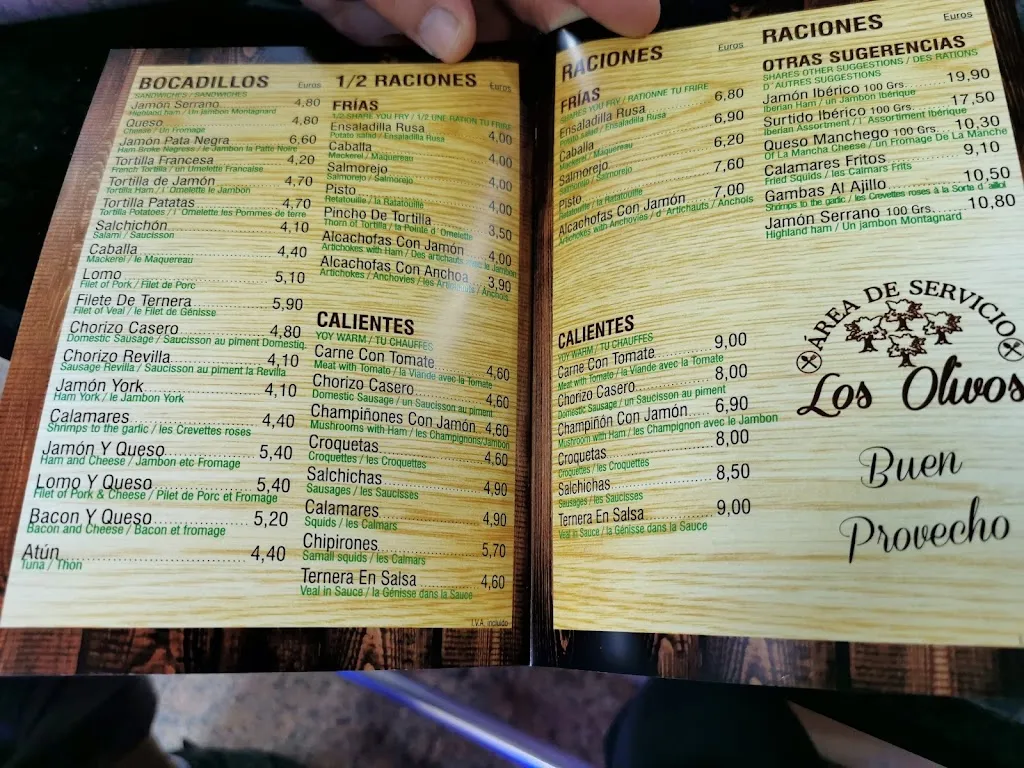 BOCADILLOS Euros
SANDWICHES / SANDWICHES
Jamón Serrano 4,80
Highland ham / Un jambon Montagnard
Queso 4,80
Cheese / Un Fromage
Jamón Pata Negra 6,60
Ham Smoke Negrese / le Jambon la Patte Noire
Tortilla Francesa 4,20
French Tortilla / un Omelette Francaise
Tortilla de Jamón 4,70
Tortilla Ham / l´Omelette le Jambon
Tortilla Patatas 4,70
Tortilla Potatoes / l´Omelette les Pommes de terre
Salchichón 4,10
Salami / Saucisson
Caballa 4,40
Mackerel / le Maquereau
Lomo 5,10
Filet of Pork / Filet de Porc
Filete De Ternera 5,90
Filet of Veal / le Filet de Génisse
Chorizo Casero 4,80
Domestic Sausage / Saucisson au piment Domestiq.
Chorizo Revilla 4,10
Sausage Revilla / Saucisson au piment la Revilla
Jamón York 4,10
Ham York / le Jambon York
Calamares 4,40
Shrimps to the garlic / les Crevettes roses
Jamón Y Queso 5,40
Ham and Cheese / Jambon etc Fromage
Lomo Y Queso 5,40
Filet of Pork & Cheese / Pilet de Porc et Fromage
Bacon Y Queso 5,20
Bacon and Cheese / Bacon et fromage
Atún 4,40
Tuna / Thon
1/2 RACIONES Euros
FRÍAS
1/2 SHARE YOU FRY / 1/2 UNE RATION TU FRIRE
Ensaladilla Rusa 4,00
Potato salad / Ensaladilla Rusa
Caballa 4,00
Mackerel / Maquereau
Salmorejo 4,00
Salmorejo / Salmorejo
Pisto 4,00
Retatouille / la Ratatouille
Pincho De Tortilla 3,50
Thorn of Tortilla / la Pointe d´Omelette
Alcachofas Con Jamón 4,00
Artichokes with Ham / Des artichauts avec le Jambon
Alcachofas Con Anchoa 3,90
Artichokes / Anchovies / les Artichauts / Anchois
CALIENTES
YOY WARM / TU CHAUFFES
Carne Con Tomate 4,60
Meat with Tomato / la Viande avec la Tomate
Chorizo Casero 4,60
Domestic Sausage / un Saucisson au piment
Champiñones Con Jamón 4,60
Mushrooms with Ham / les Champignons/Jambon
Croquetas 4,60
Croquettes / les Croquettes
Salchichas 4,90
Sausages / les Saucisses
Calamares 4,90
Squids / les Calmars
Chipirones 5,70
Samall squids / les Calmars
Ternera En Salsa 4,60
Veal in Sauce / la Génisse dans la Sauce
I.V.A. incluido
RACIONES Euros
FRÍAS
SHARES YOU FRY / RATIONNE TU FRIRE
Ensaladilla Rusa 6,80
Potato salad / Ensaladilla Rusa
Caballa 6,90
Mackerel / Maquereau
Salmorejo 6,20
Salmorejo / Salmorejo
Pisto 7,60
Retatouille / la Ratatouille
Alcachofas Con Jamón 7,00
Artichokes with Anchovies / d´Artichauts / Anchois
CALIENTES
YOY WARM / TU CHAUFFES
Carne Con Tomate 9,00
Meat with Tomato / la Viande avec la Tomate
Chorizo Casero 8,00
Domestic Sausage / un Saucisson au piment
Champiñón Con Jamón 6,90
Mushroom with Ham / les Champignon avec le Jambon
Croquetas 8,00
Croquettes / les Croquettes
Salchichas 8,50
Sausages / les Saucisses
Ternera En Salsa 9,00
Veal in Sauce / la Génisse dans la Sauce
RACIONES Euros
OTRAS SUGERENCIAS
SHARES OTHER SUGGESTIONS / DES RATIONS
D´AUTRES SUGGESTIONS
Jamón Ibérico 100 Grs. 19,90
Iberian Ham / un Jambon Ibérique
Surtido Ibérico 100 Grs. 17,50
Iberian Assortment / l´Assortiment Ibérique
Queso Manchego 100 Grs. 10,30
Of La Mancha Cheese / un Fromage De La Manche
Calamares Fritos 9,10
Fried Squids / les Calmars Frits
Gambas Al Ajillo 10,50
Shrimps to the garlic / les Crevettes roses à la Sorte d´aillol
Jamón Serrano 100 Grs. 10,80
Highland ham / Un jambon Montagnard
ÁREA DE SERVICIO
Los Olivos
Buen
Provecho